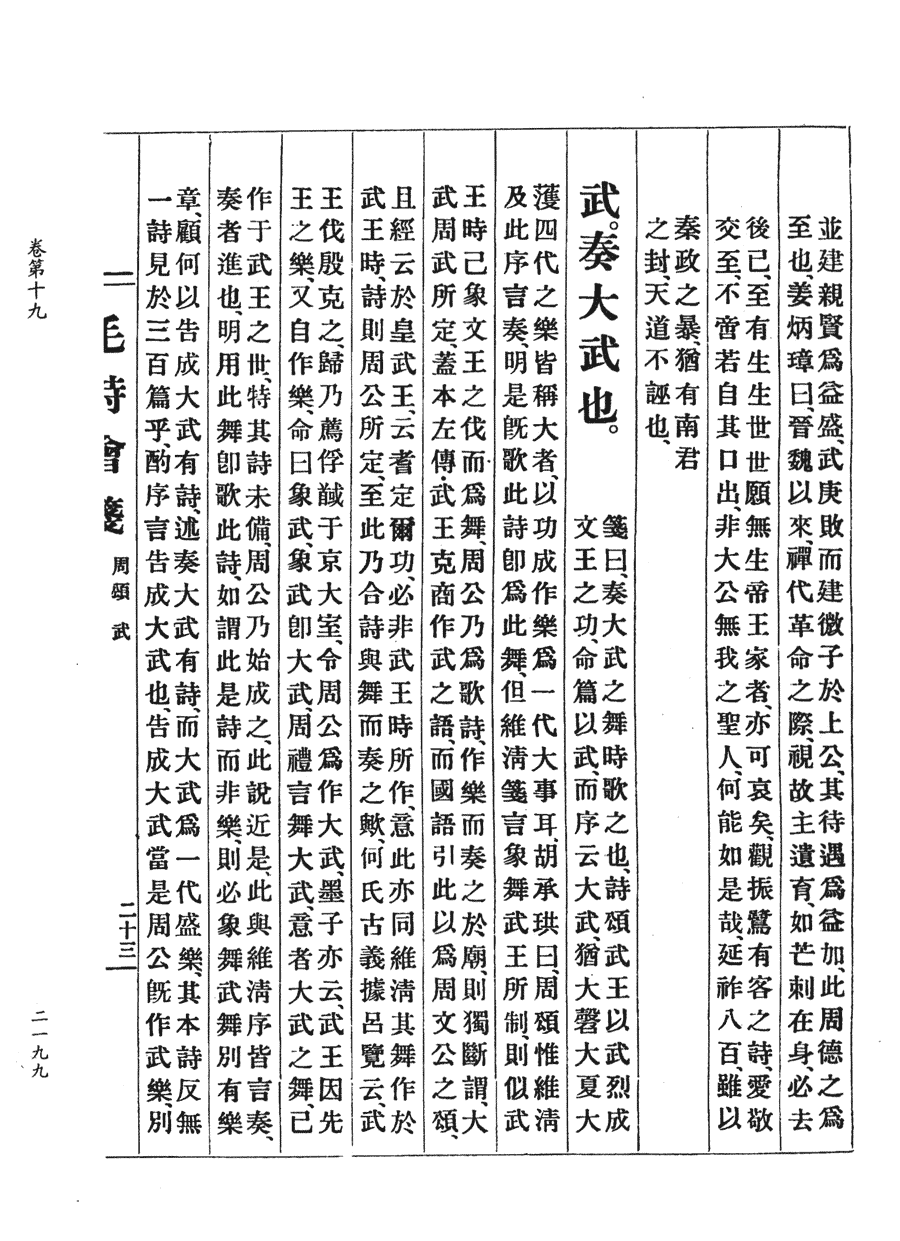 並建親賢爲益盛、武庚敗而建微子於上公、其待遇爲益加、此周德之爲
至也、姜炳璋曰、晉魏以來、禪代革命之際、視故主遺育、如芒刺在身、必去
後已、至有生生世世願無生帝王家者、亦可哀矣、觀振鷺有客之詩、愛敬
交至、不啻若自其口出、非大公無我之聖人、何能如是哉、延祚八百、雖以
秦政之暴、猶有南君
之封、天道不誣也、
武。奏大武也。
箋曰、奏大武之舞時歌之也、詩頌武王以武烈成
文王之功、命篇以武、而序云大武、猶大磬大夏大
濩四代之樂皆稱大者、以功成作樂爲一代大事耳、胡承珙曰、周頌惟維淸
及此序言奏、明是旣歌此詩卽爲此舞、但維淸箋言象舞武王所制、則似武
王時已象文王之伐而爲舞、周公乃爲歌詩、作樂而奏之於廟、則獨斷謂、大
武周武所定、蓋本左傳、武王克商作武之語、而國語引此以爲周文公之頌、
且經云於皇武王、云耆定爾功、必非武王時所作、意此亦同維淸其舞作於
武王時、詩則周公所定、至此乃合詩與舞而奏之歟、何氏古義據呂覽云、武
王伐殷克之、歸乃薦俘馘于京大室、令周公爲作大武、墨子亦云、武王因先
王之樂、又自作樂、命曰象武、象武卽大武、周禮言舞大武、意者大武之舞、已
作于武王之世、特其詩未備、周公乃始成之、此說近是、此與維淸序皆言奏、
奏者進也、明用此舞卽歌此詩、如謂此是詩而非樂、則必象舞武舞別有樂
章、顧何以告成大武有詩、述奏大武有詩、而大武爲一代盛樂、其本詩反無
一詩見於三百篇乎、酌序言告成大武也、告成大武當是周公旣作武樂、別
毛詩會箋 周頌 武
二十三
卷第十九
二一九九